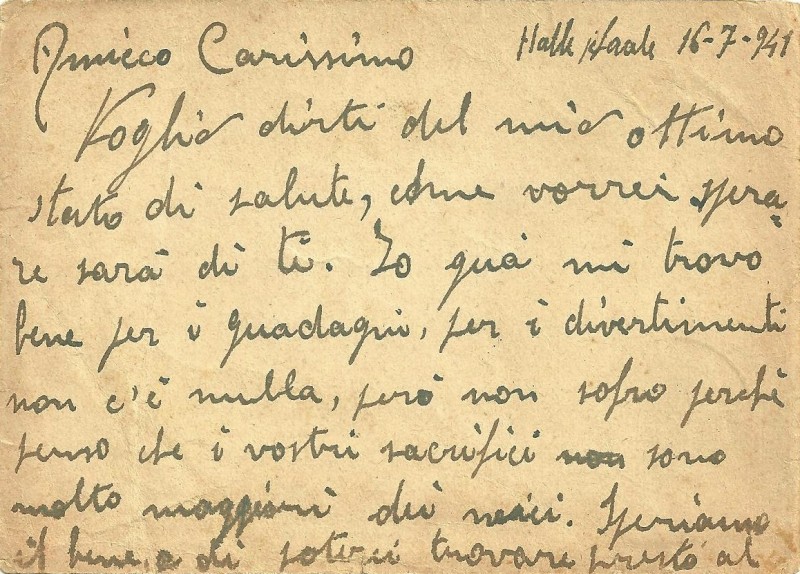 Halle /Saale 16-7-941
Amico Carissimo
Voglio dirti del mio ottimo
stato di salute, come vorrei spera=
re sarà di ti. Io quà mi trovo
bene per i guadagni, per i divertimenti
non c'è nulla, però non sofro perchè
penso che i vostri sacrifici non sono
molto maggiori dei miei. Speriamo
il bene, e di poterci trovare presto al